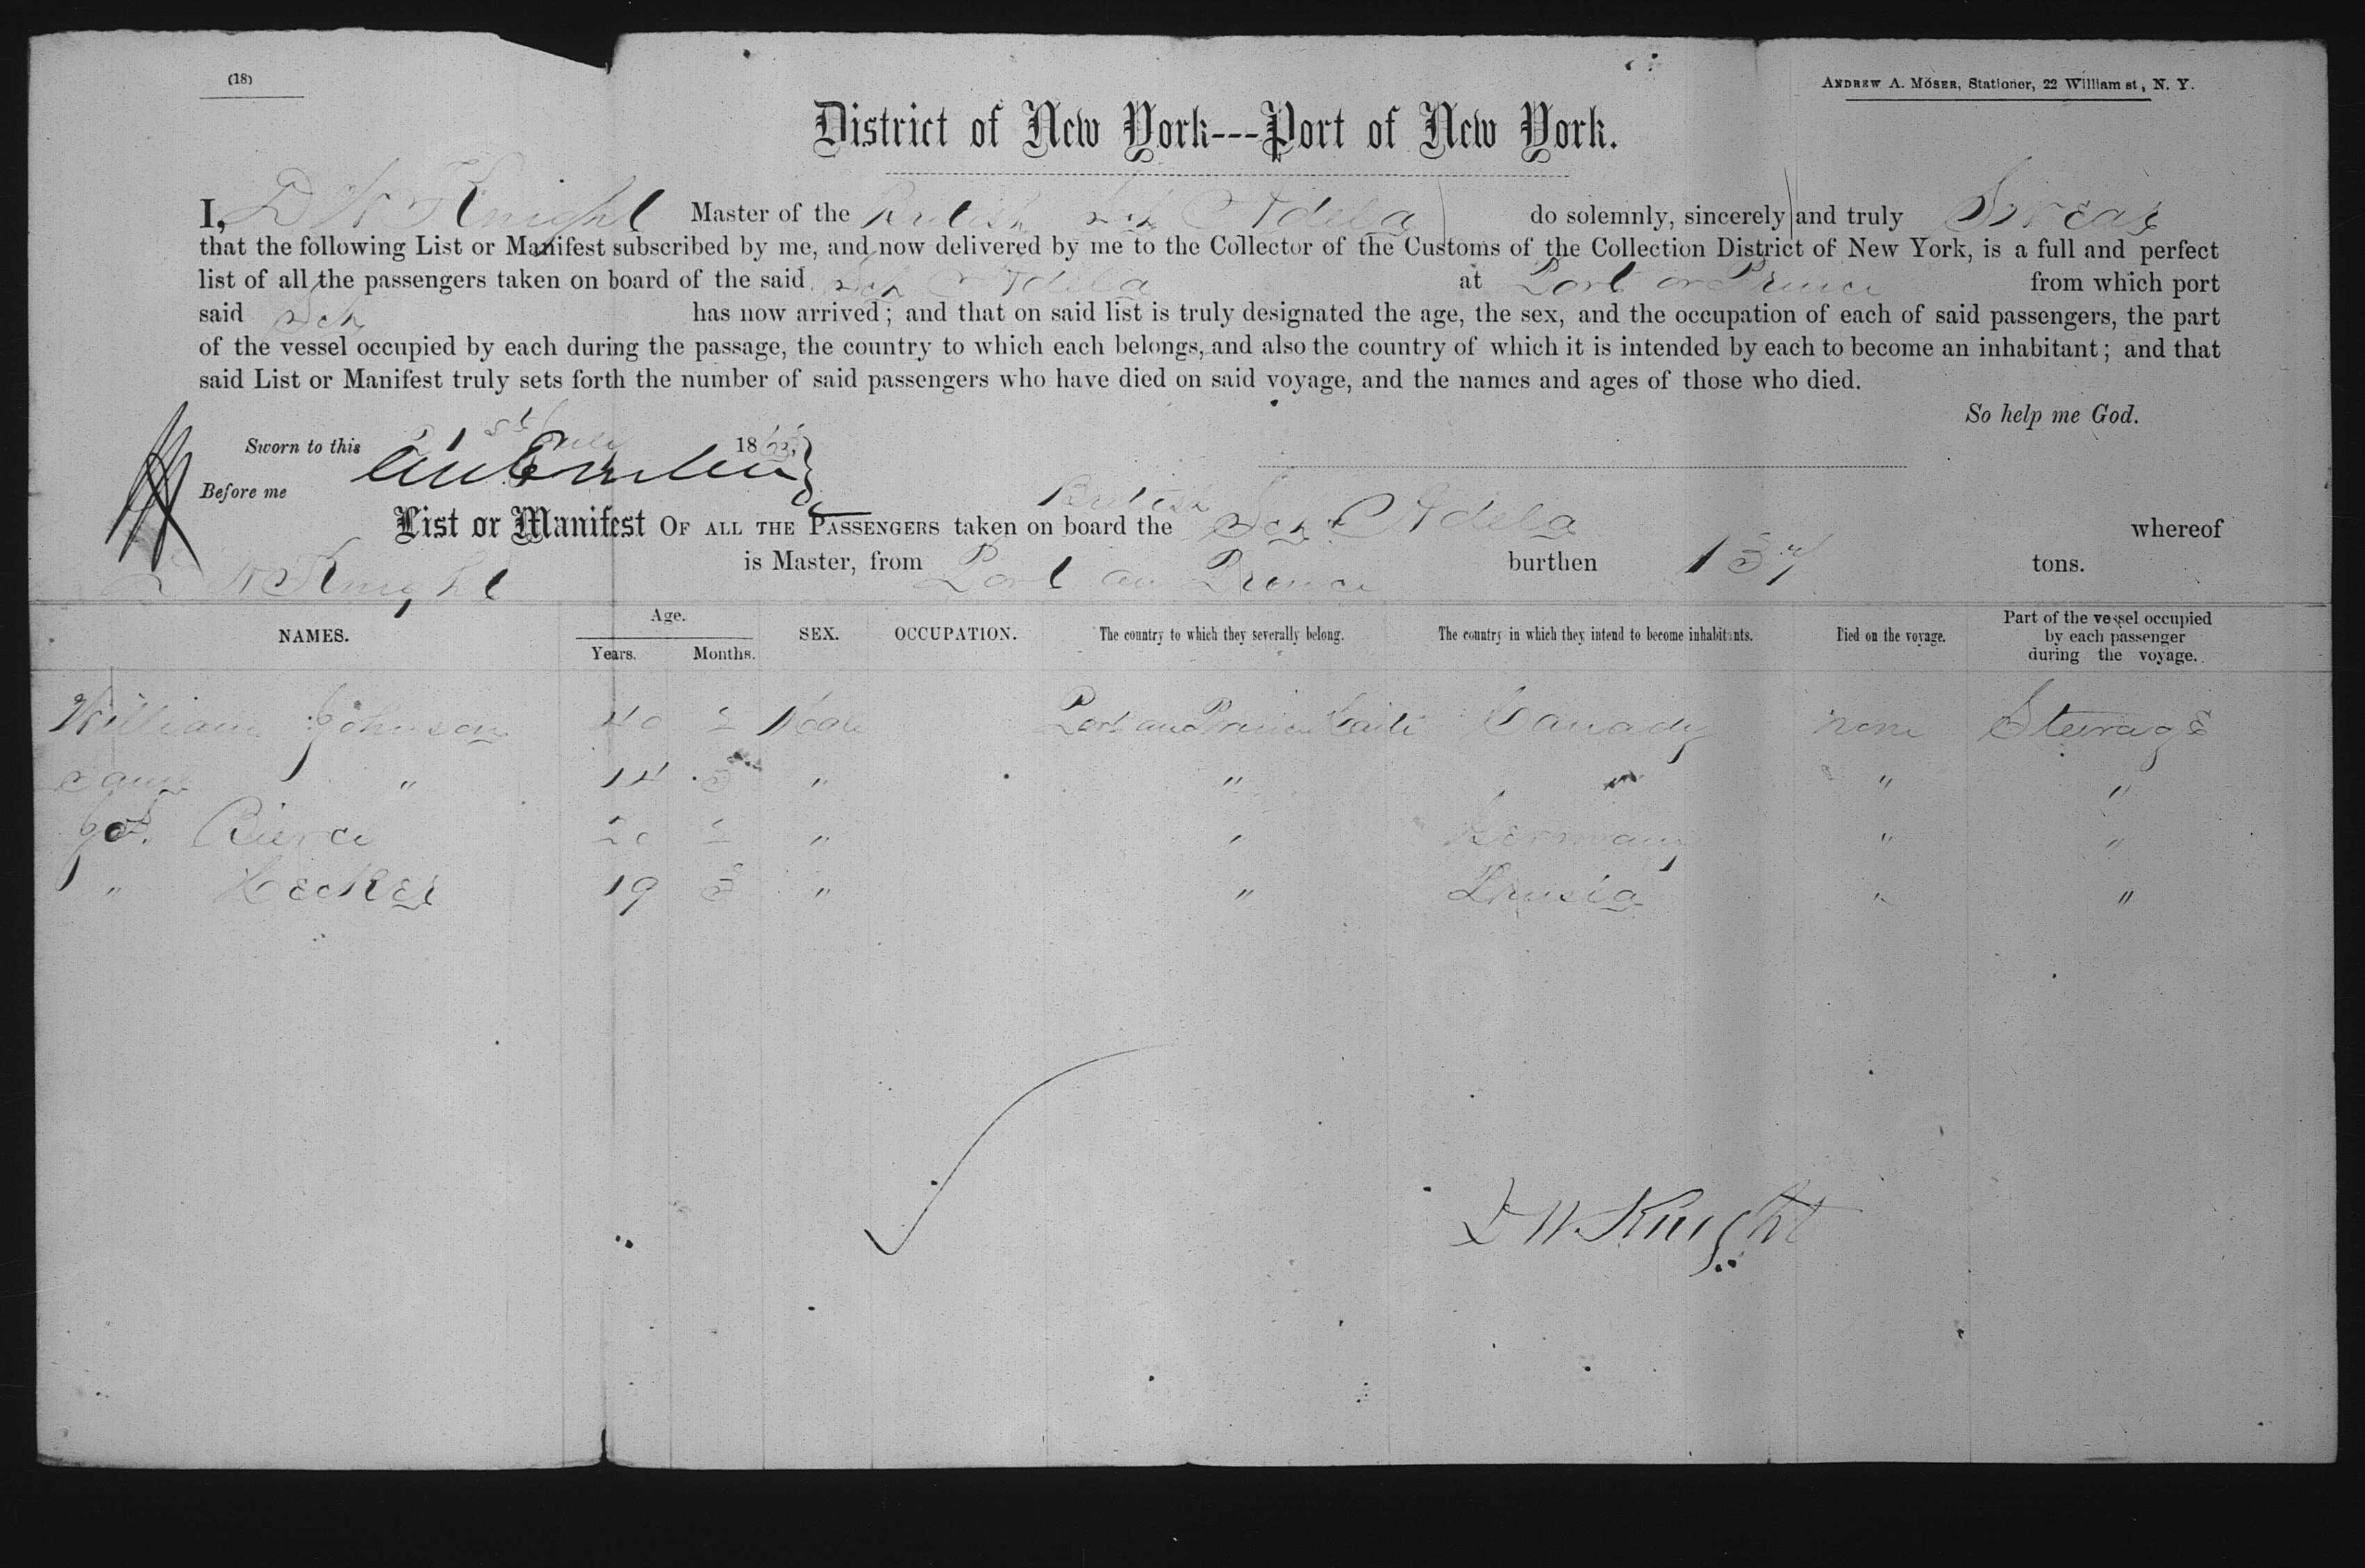 (18)
ANDREW A. MÖSER, Stationer, 22 William st, N. Y.
District of New York---Port of New York.
I, D W Knight Master of the British Sch Adela do solemnly, sincerely and truly Swear
that the following List or Manifest subscribed by me, and now delivered by me to the Collector of the Customs of the Collection District of New York, is a full and perfect
list of all the passengers taken on board of the said Sch Adela at Port or Prince from which port
said Sch has now arrived; and that on said list is truly designated the age, the sex, and the occupation of each of said passengers, the part
of the vessel occupied by each during the passage, the country to which each belongs, and also the country of which it is intended by each to become an inhabitant; and that
said List or Manifest truly sets forth the number of said passengers who have died on said voyage, and the names and ages of those who died.
So help me God.
Sworn to this 18
Before me
British
List or Manifest OF ALL THE PASSENGERS taken on board the Sch Adela whereof
D W Knight is Master, from Port au Prince burthen 137 tons.
NAMES. Age. Years. Months. SEX. OCCUPATION. The country to which they severally belong. The country in which they intend to become inhabitants. Died on the voyage. Part of the vessel occupied by each passenger during the voyage.
William Johnson 40 2 Male Port au Prince Haiti Canady none Steerage
14 3 " " " " "
Jos. Pierce 20 2 " " Germany " "
" Hecker 19 3 " " Prusia " "
D W Knight